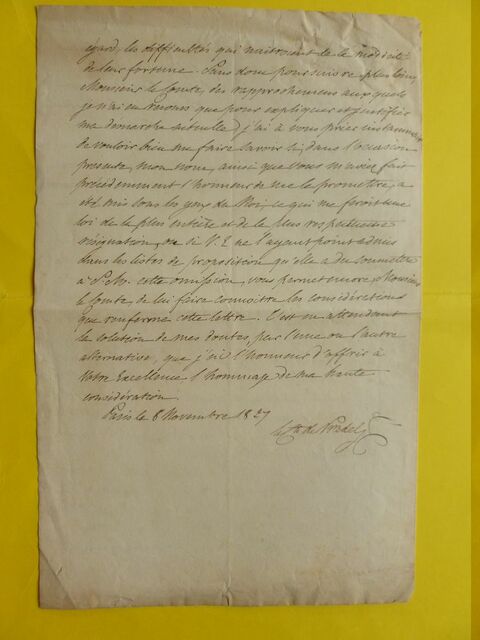 égard, les difficultés qui naitroient de la modicité
de leur fortune. Sans donc poursuivre plus loin,
Monsieur le Comte, des rapprochemens auxquels
je n'ai eu recours que pour expliquer et justifier
ma démarche actuelle, j'ai à vous prier instamment
de vouloir bien me faire savoir si, dans l'occasion
présente, mon nom, ainsi que vous m'aviez fait
précédemment l'honneur de me le promettre, a
été mis sous les yeux du Roi, ce qui me feroit une
loi de la plus entière et de la plus respectueuse
résignation, ou si V. E. ne l'ayant point admis
dans les listes de proposition qu'elle a du soumettre
à S. M. cette omission, vous permet encore, Monsieur
le Comte, de lui faire connoitre les considérations
que renferme cette lettre. C'est en attendant
la solution de mes doutes, par l'une ou l'autre
alternative, que j'ai l'honneur d'offrir à
Votre Excellence l'hommage de ma haute
considération.
Paris le 8 Novembre 1827